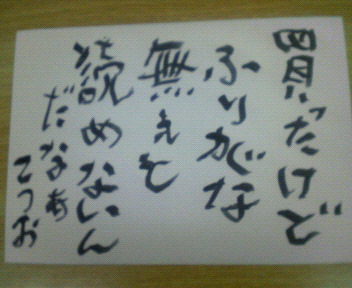 買だけど
ふりがな
無えと
読めないん
だなぁ
てつお